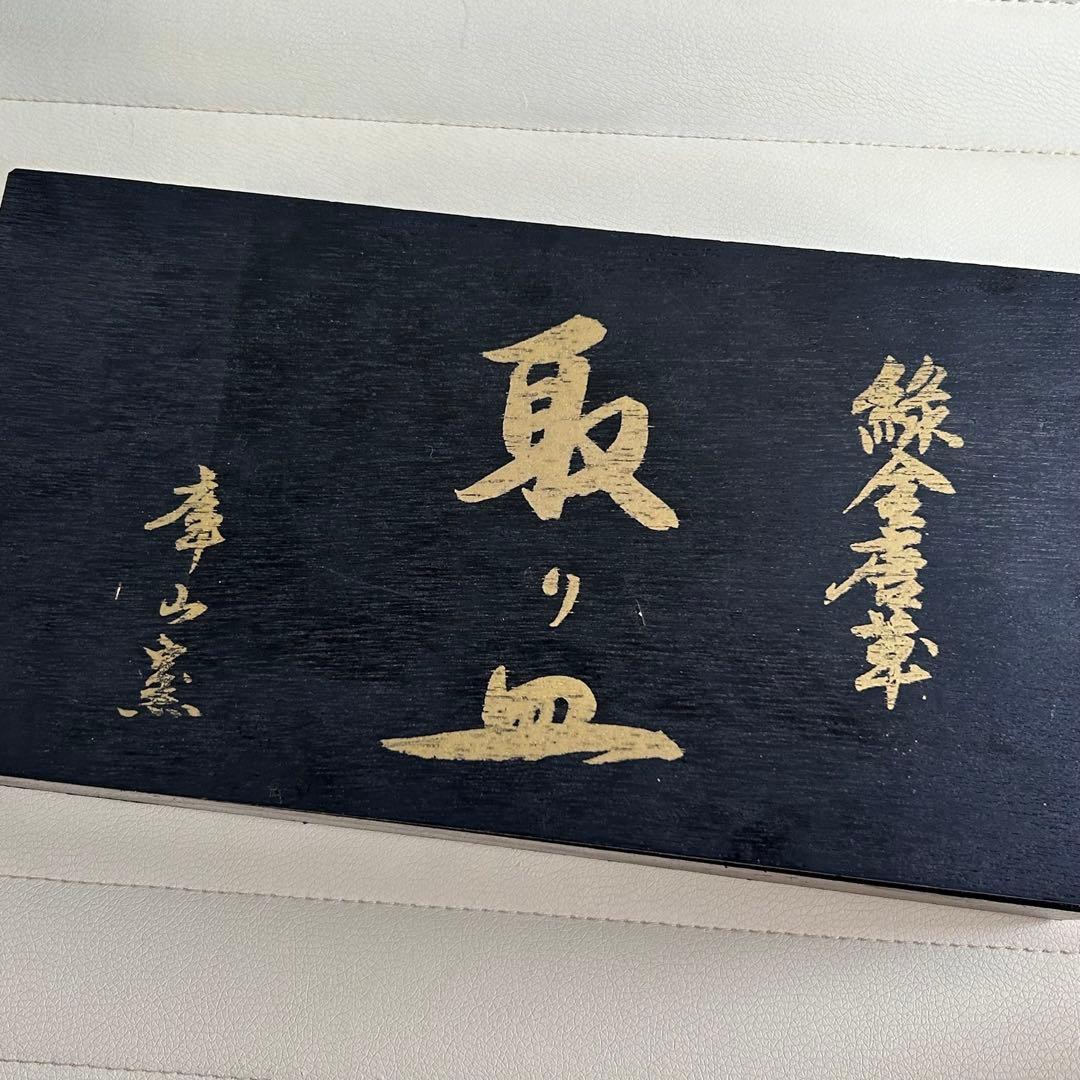 緑金唐草
取り皿
幸山窯